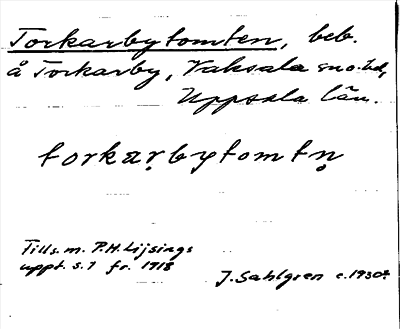 Torkarbytomten, beb.
å Torkarby, Vaksala sn o. hd,
Uppsala län.
torkaṛbytomtṇ
Tills. m. P.H. Lijsings
uppt. s. 7 fr. 1918
J. Sahlgren c. 1930